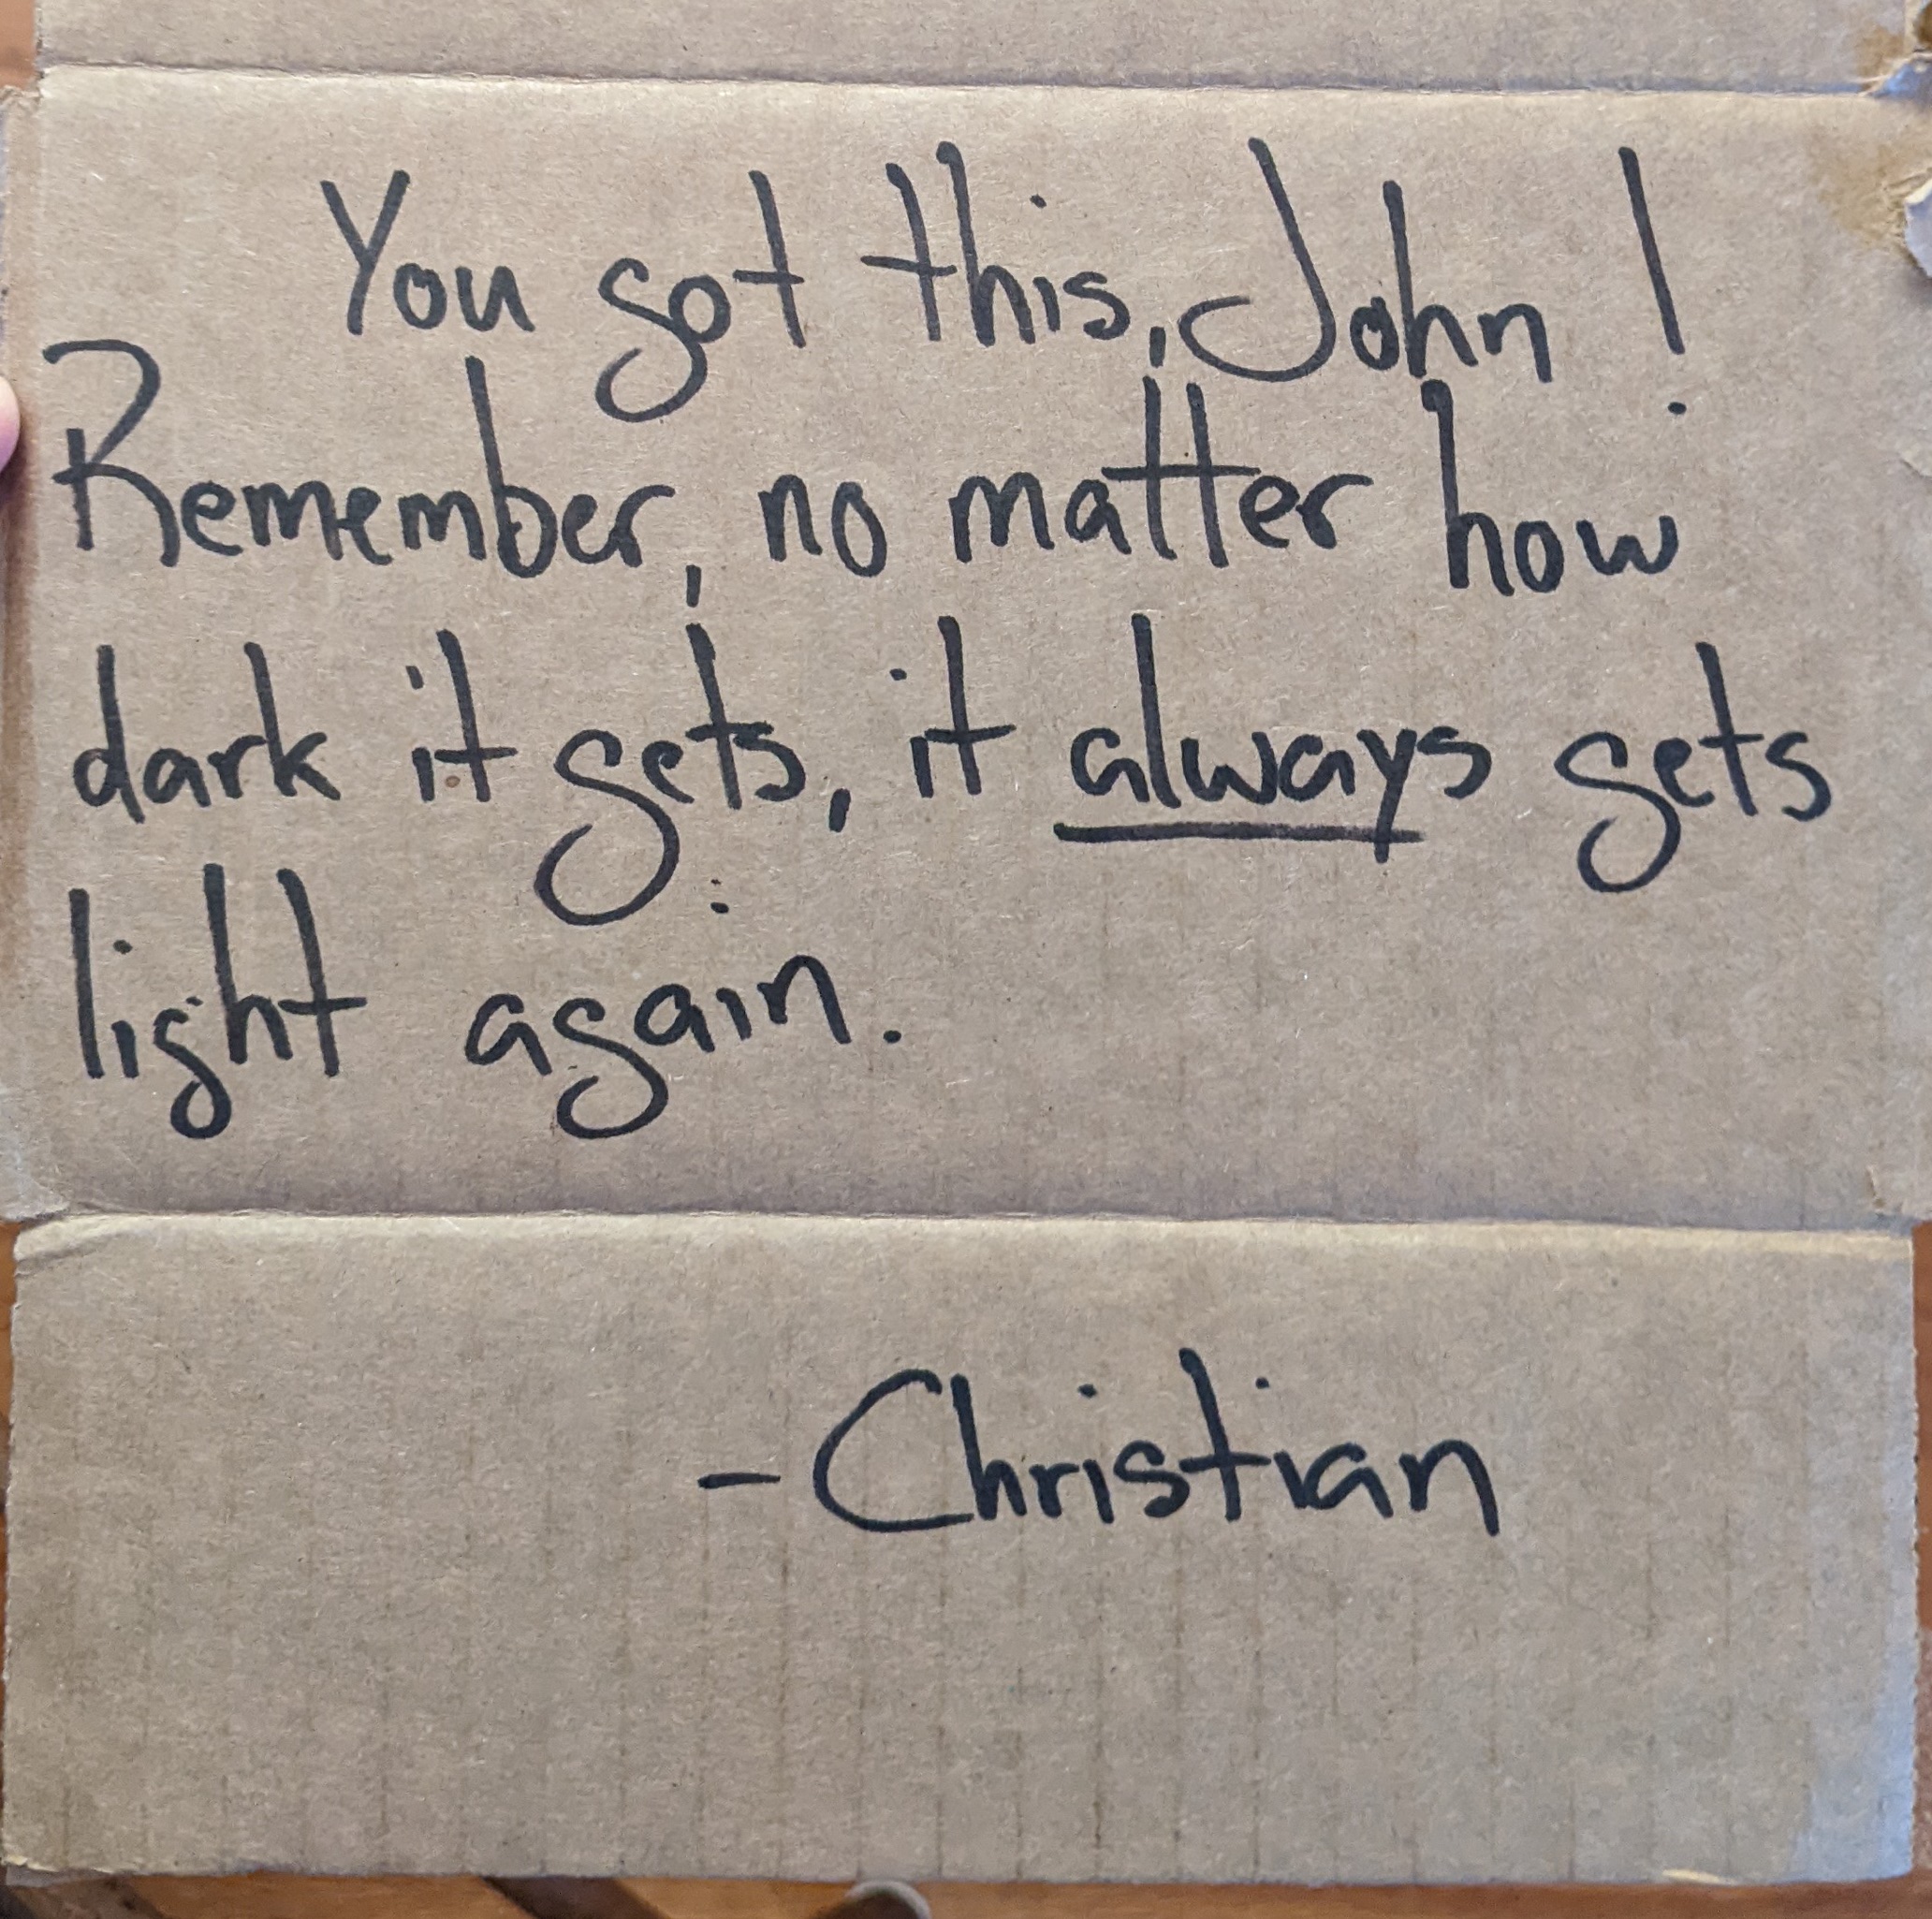 You got this, John!
Remember, no matter how
dark it gets, it always gets
light again.
-Christian